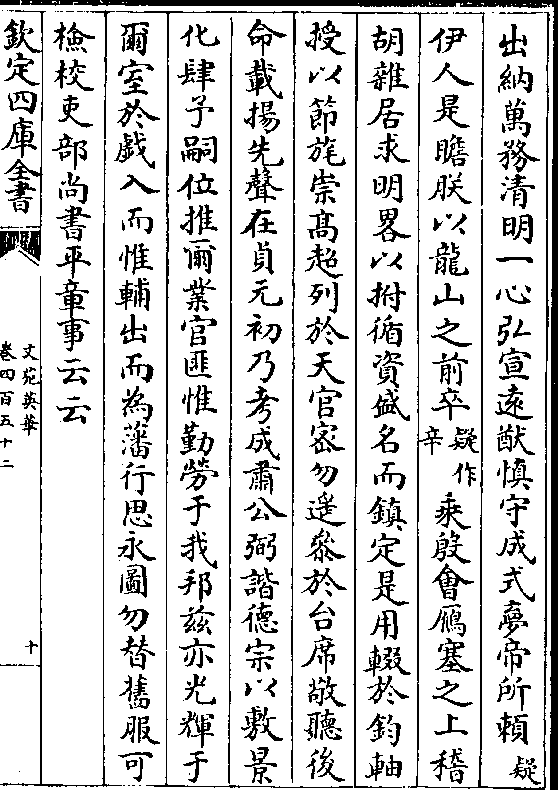 出納萬務清明一心弘宣遠猷慎守成式夢帝所頼疑
伊人是瞻朕以龍山之前卒疑作辛乘殷會鴈塞之上稽
胡雜居求明畧以拊循資盛名而鎮定是用輟於鈞軸
授以節旄崇髙超列於天官密勿遥叅於台席敬聽後
命載揚先聲在貞元初乃考成肅公弼諧德宗以敷景
化肆予嗣位推爾業官匪惟勤勞于我邦兹亦光輝于
爾室於戲入而惟輔出而為藩行思永圖勿替舊服可
檢校吏部尚書平章事云云
欽定四庫全書
文苑英華
卷四百五十二
十